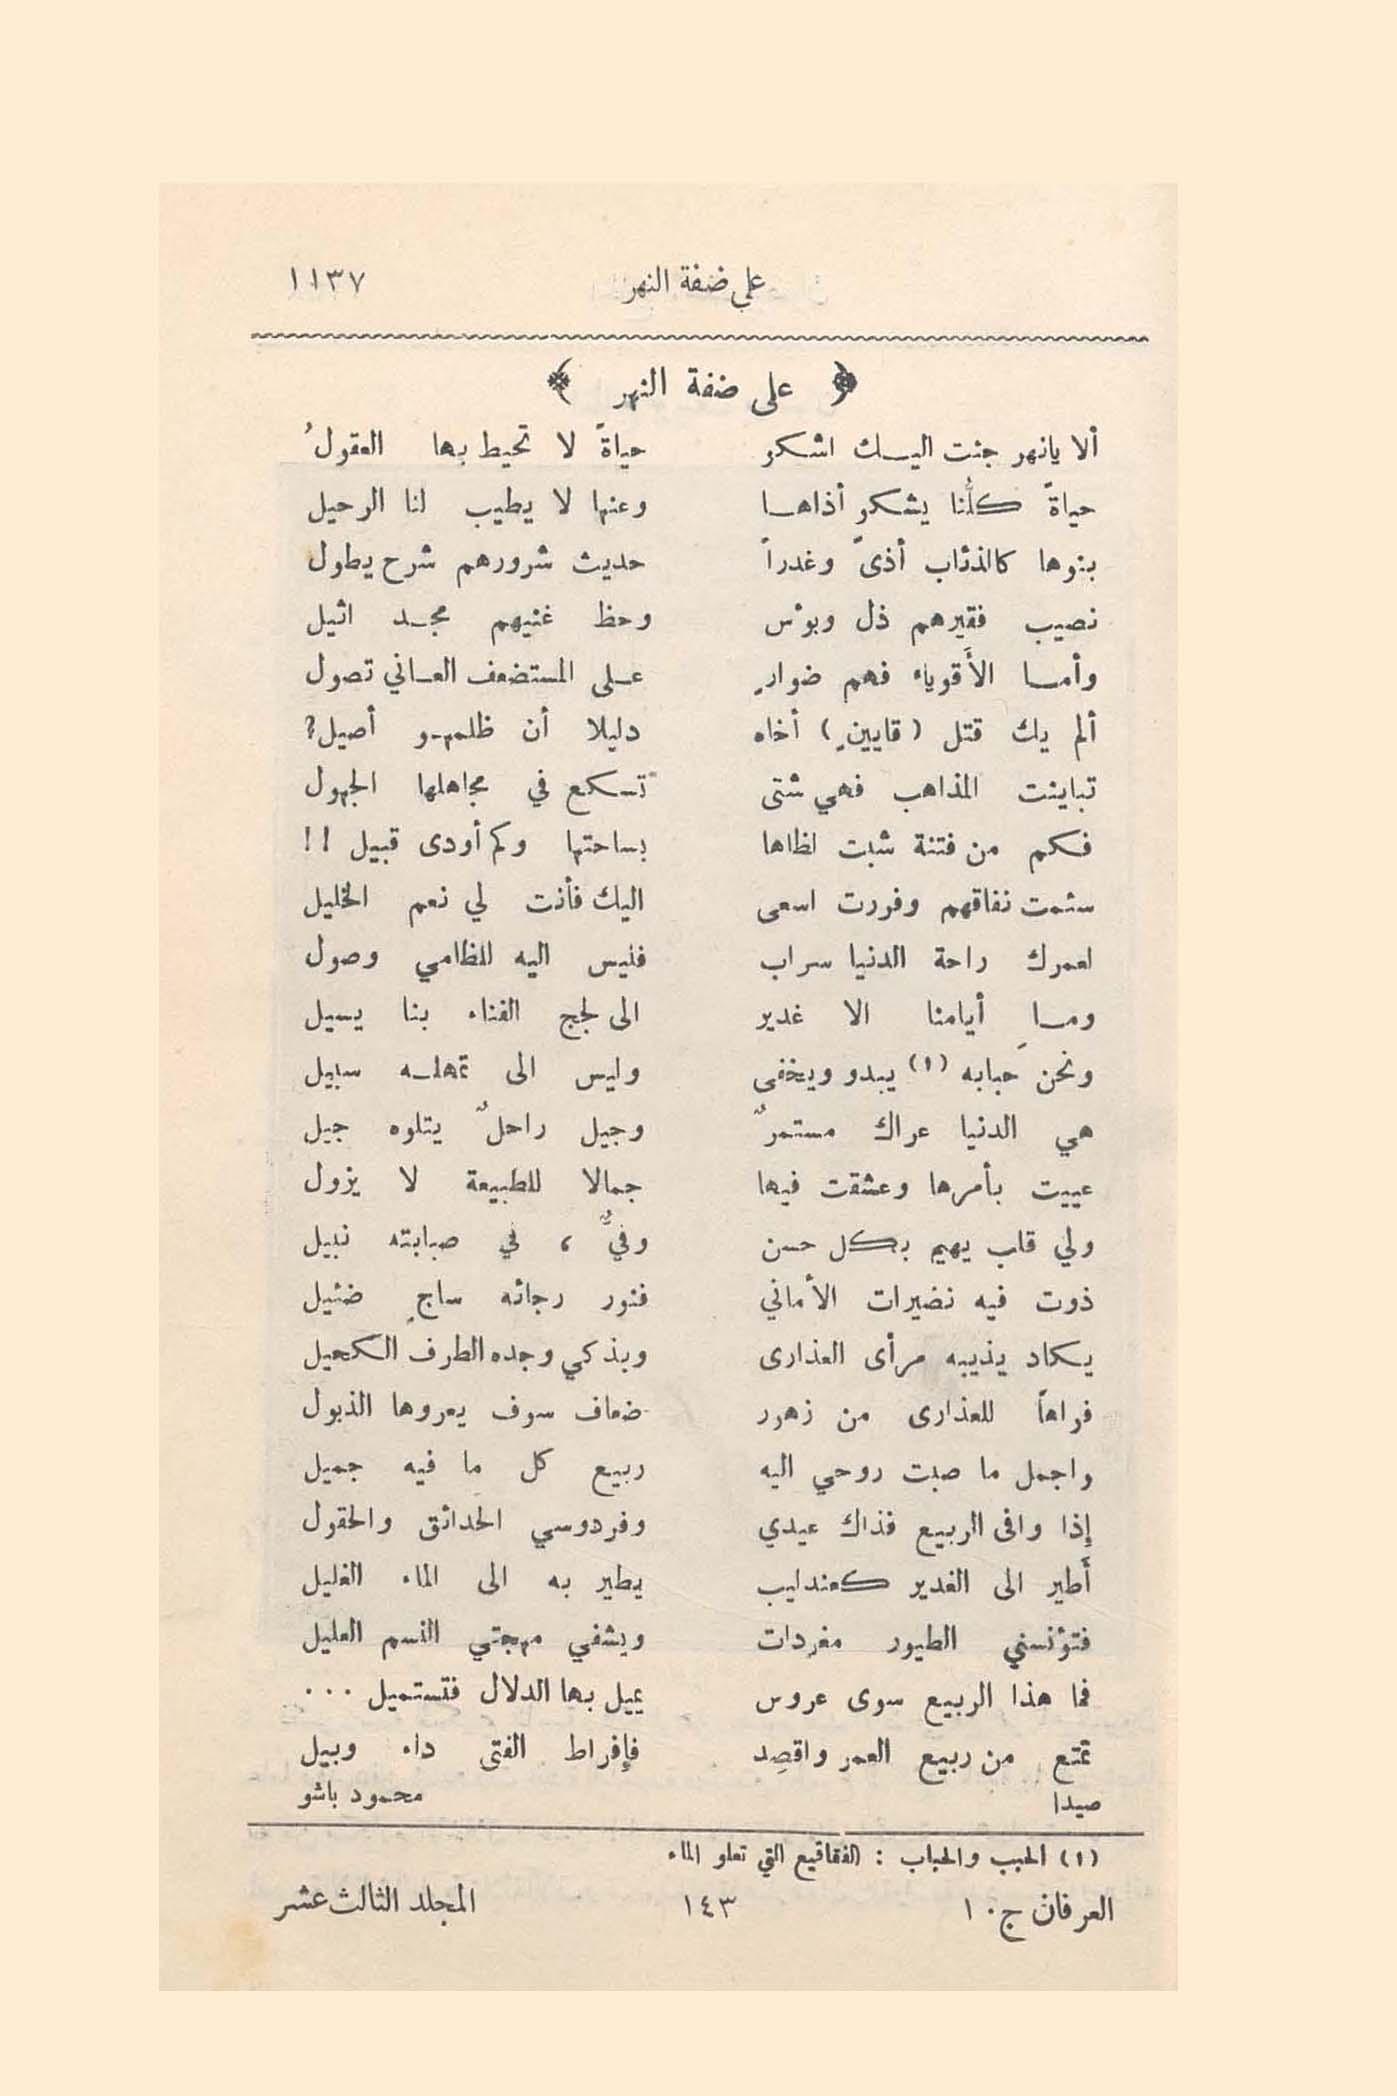 على ضفة النهر ١١٣٧
﴿ على ضفة النهر ﴾
ألا يانهر جئت اليـك اشكو حياةً لا تحيط بها العقولُ
حياةً كلُّنا يشكو أذاهـا وعنها لا يطيب لنا الرحيل
بنوها كالذئاب أذىً وغدراً حديث شرورهم شرح يطول
نصيب فقيرهم ذل وبؤس وحظ غنيهم مجـد اثيل
وأمـا الأَقوياء فهم ضوارٍ عـلى المستضعف العـاني تصول
ألم يك قتل (قايينٍ) أخاه دليلا أن ظلمهـو أصيل؟
تباينت المذاهب فهي شتى تسكع في مجاهلها الجهول
فكم من فتنة شبت لظاها بساحتها وكم أودى قبيل !!
سئمت نفاقهم وفررت اسعى اليك فأنت لي نعم الخليل
لعمرك راحة الدنيا سراب فليس اليه للظامي وصول
ومـا أيامنا الا غدير الى لجج الفناء بنا يسيل
ونحن حَبابه (١) يبدو ويخفى وليس الى تمهلـه سبيل
هي الدنيا عراك مستمرٌ وجيل راحلٌ يتلوه جيل
عييت بأمرها وعشقت فيها جمالا للطبيعة لا يزول
ولي قلب يهيم بكل حسن وفيٌّ ، في صبابته نبيل
ذوت فيه نضيرات الأماني فنور رجائه ساجٍ ضئيل
يكاد يذيبه مرأى العذارى ويذكي وجده الطرف الكحيل
فراهاً للعذارى من زهور ضعاف سوف يعروها الذبول
واجمل ما صبت روحي اليه ربيع كل ما فيه جميل
إذا وافى الربيع فذاك عيدي وفردوسي الحدائق والحقول
أَطير الى الغدير كعندليب يطير به الى الماء الغليل
فتؤنسني الطيور مغردات ويشفي مهجتي النسم العليل
فما هذا الربيع سوى عروس يميل بها الدلال فتستميل ...
تمتع من ربيع العمر واقصِد فإفراط الفتى داء وبيل
صيدا محمود باشو
(١) الحبب والحباب : الفقاقيع التي تعلو الماء
العرفان ج ١٠ ١٤٣ المجلد الثالث عشر